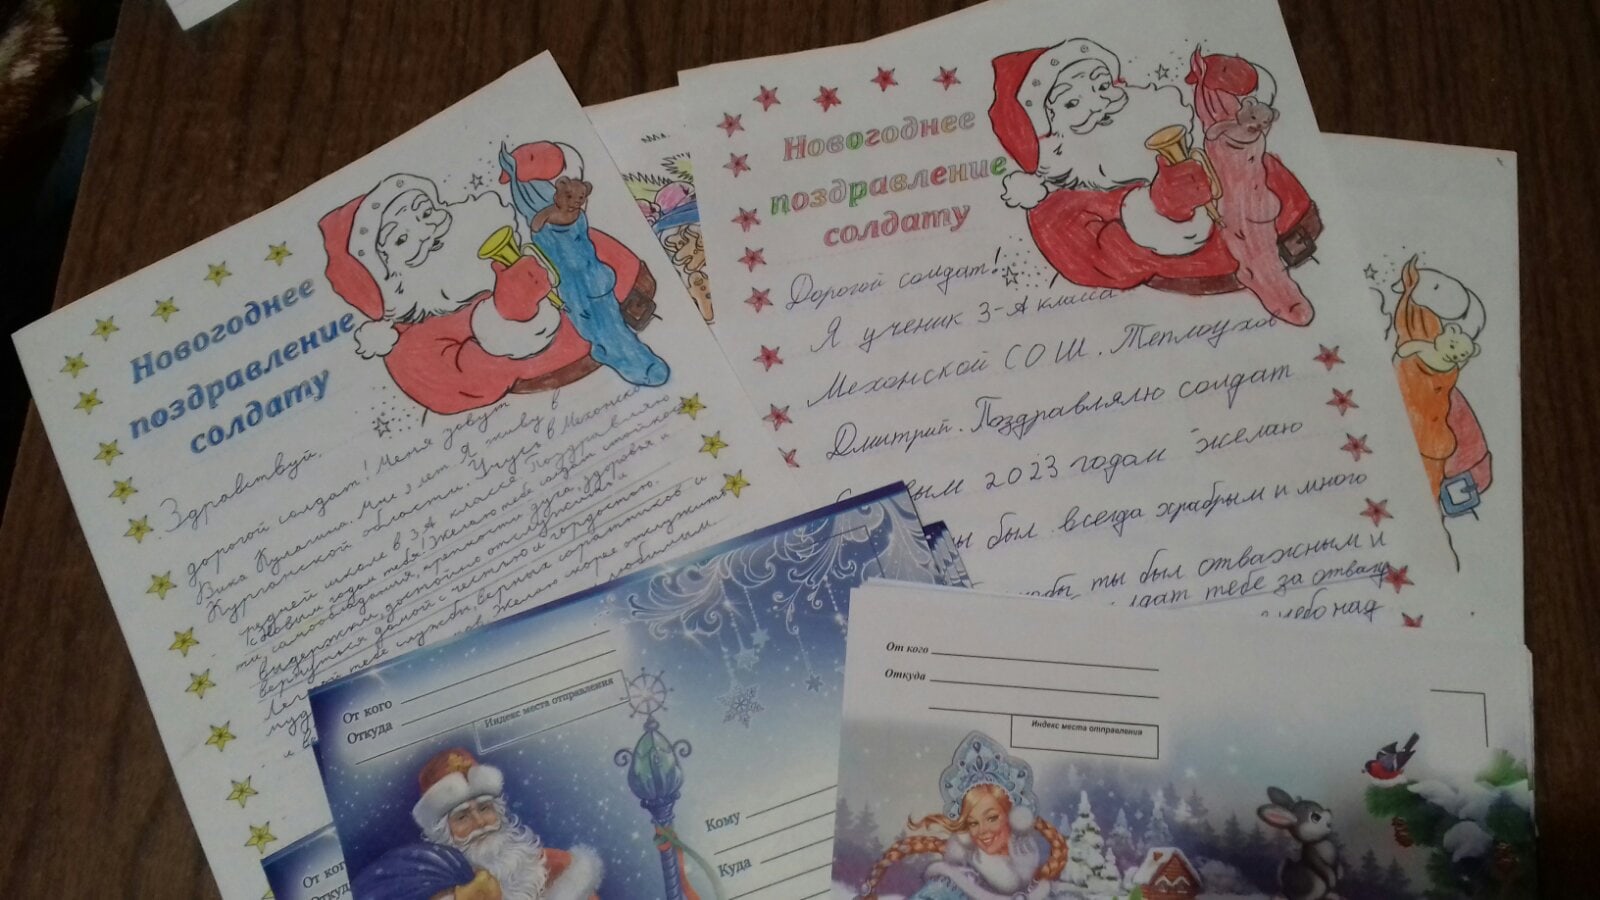 Новогоднее
поздравление
солдату
Здравствуй,
дорогой солдат! Меня зовут
Вика Кулагина. Мне 9 лет. Я живу в
Курганской области. Учусь в Мехонской
школе в 3А классе. Поздравляю
с Новым годом тебя! Желаю тебе
самообладания, крепкости духа, здоровья и
выдержки, достойно отслужить и
вернуться домой с честью и гордостью.
тебе службы, верных соратников и
Желаю скорее отслужить
любимым
Новогоднее
поздравление
солдату
Дорогой солдат!
Я ученик 3-А класса
Мехонской СОШ. Теплоухов
Дмитрий. Поздравляю солдат
2023 годом желаю
был всегда храбрым и много
ты был отважным и
тебе за отвагу
небо над
От кого
Откуда
Индекс места отправления
Кому
Куда
От кого
Откуда
Индекс места отправления
От ког
Откуда